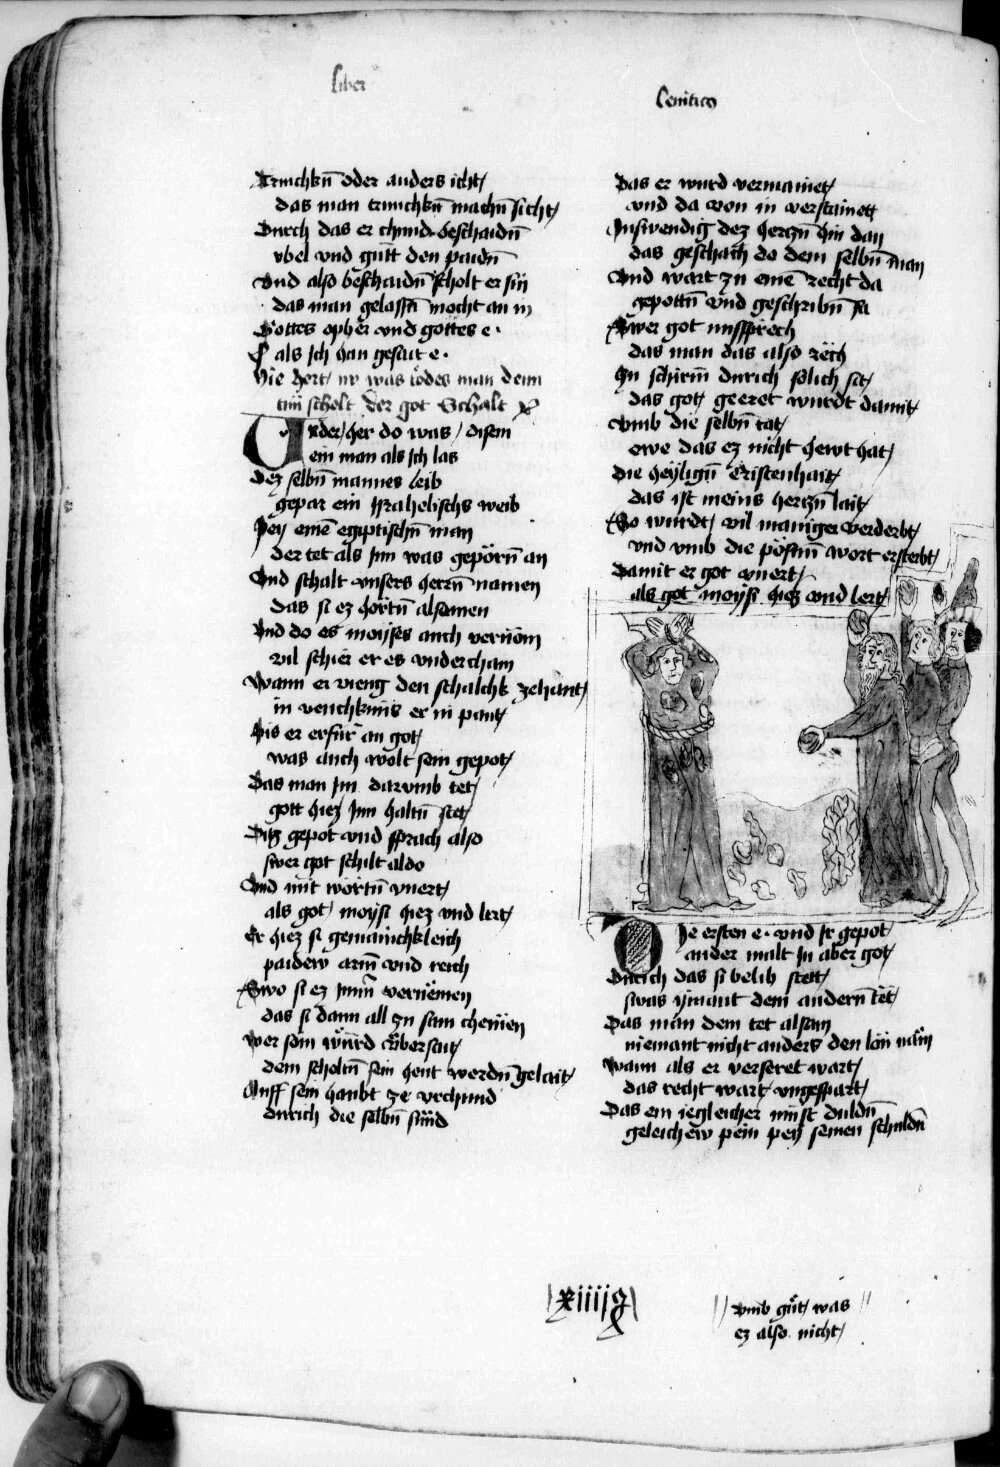 Liber
Leuitico
Trinchkñ oder anders icht/
das man trinchkñ machñ sicht/
Durch das er chund beschaidñ
vbel vnd gutt den paidñ
Vnd also beschaidñ scholt er sin
das man gelassñ mocht an in
Gottes opher vnd gottes e.
als Ich han gesait e.
Hie hort/ nv was todes man dem
tun scholt der got Schalt
Under/her do was/ disem
ein man als Ich las
Dez selbñ mannes leib
gepar ein Israhelischs weib
Pey einē egiptischñ man
der tet als Im was gepörñ an
Vnd schalt vnsers herrñ namen
das si ez hörtñ alsamen
Vnd do es moyses auch vernöm
vil schier er es vndercham
Wann er vieng den schalchk zehant/
in venchknüs er in pant/
Bis er erfür an got/
was auch wolt sein gepot/
Das man Im darvmb tet/
gott hiez Inn haltñ stet/
Ditz gepot vnd sprach also
swer got schilt aldo
Vnd mit wortñ vnert/
als got/ moysi hiez vnd lert/
Er hiez si gemainchkleich
paidew arm vnd reich
Swo si ez vernëmen
das si dann all zu sam chemen
Wer sein würd vbersait/
dem scholtñ sein hent werdñ gelait/
Auff sein haubt ze vrchund
durich die selbñ sünd
Das er wurd vermainet/
vnd da von in verstainett
Inswendig dez hertzñ hin dan
das geschach do dem selbñ man
Vnd wart zu einē recht da
gepottñ vnd geschribñ sa
Swer got missprech
das man das also rech
In schirm durich solich sit/
das got/ geeret wurdt damit/
Vmb die selbñ tat/
owe das ez nicht hewt hat/
Die heyligñ Cristenhait/
das ist meins hertzñ lait/
So wurdt/ vil maniger verderbt/
vnd vmb die pösñ wort ersterbt/
Damit er got vnert/
als got moysi hiez vnd lert/
Die ersten e. vnd Ir gepot/
ander malt In aber got/
Durich das si belib stett/
swas ymant dem andern tët/
Das man dem tet alsam
niemant nicht anders den lon näm
Wann als er verseret wart/
das recht wart vngespart/
Das ein iegleicher must duldñ
geleichew pein pey seinen schuldñ
xiiij9
vmb güt/ was
ez also nicht/